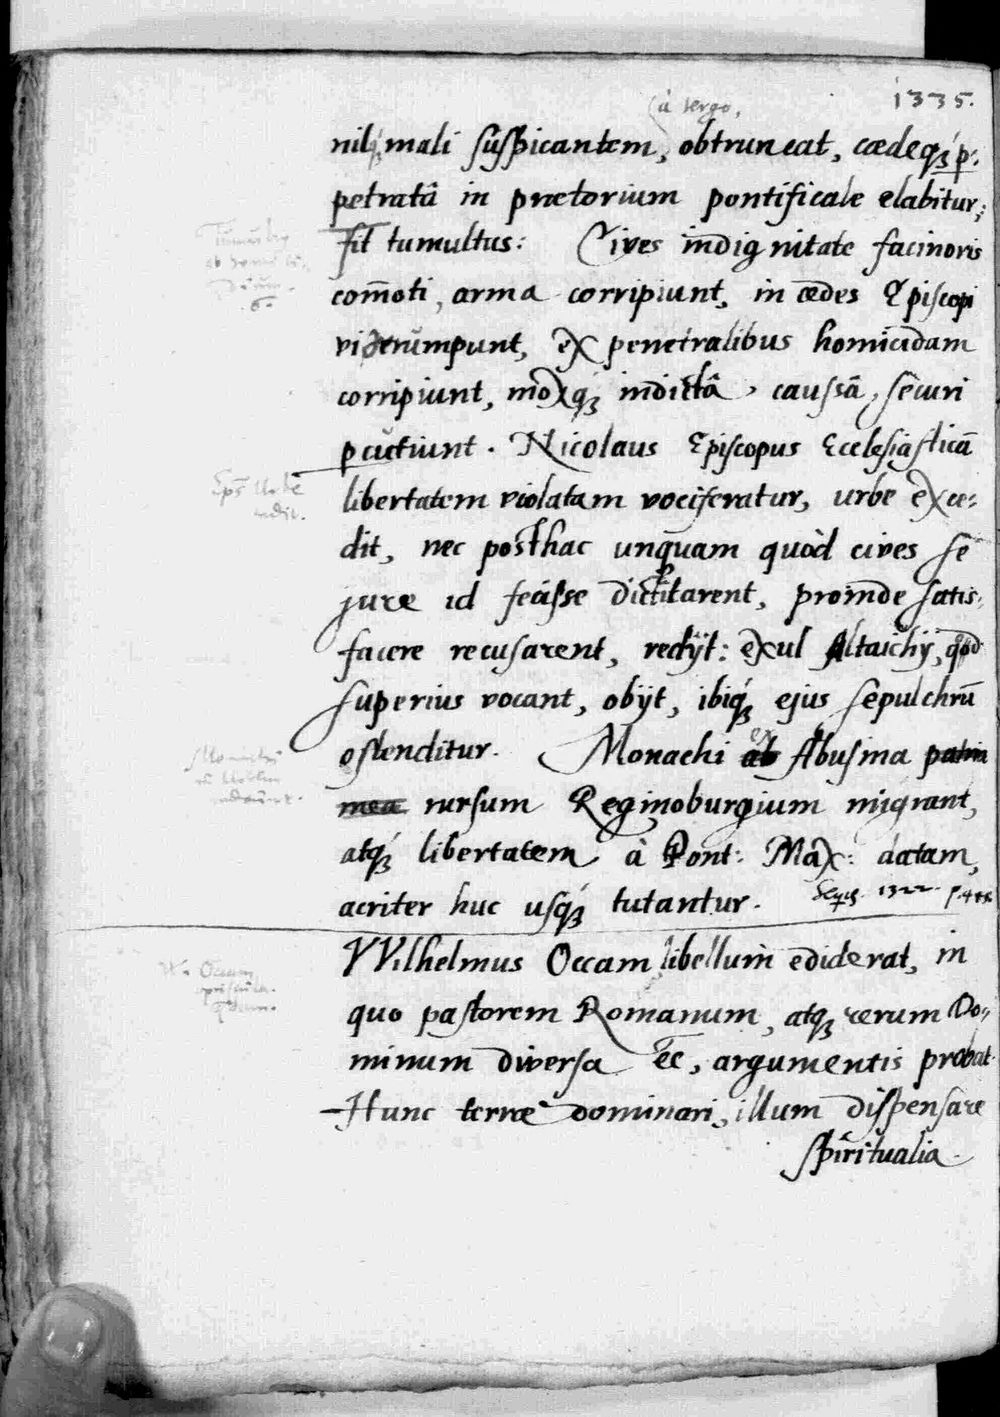 1335.
à tergo,
nilq́ȝ mali suspicantem, obtruncat, cædeq́ȝ p:
petratâ in prætorium pontificale elabitur;
fit tumultus: Cives indignitate facinoris
com̄oti, arma corripiunt, in ædes Episcopi
irrumpunt, ex penetralibus homicidam
corripiunt, moxq́ȝ indictâ, caussâ, securi
pcutiunt. Nicolaus Episcopus Ecclesiasticā
libertatem violatam vociferatur, urbe exce:
dit, nec posthac unquam quòd cives se
jure id fecisse dictitarent, proinde satis:
facere recusarent, redijt: exul Altaichij, qđ
superius vocant, obijt, ibiq́ȝ ejus sepulchrū
ostenditur. Monachi ab ex Abusina patria
mea rursum Reginoburgium migrant,
atq́ȝ libertatem à Pont: Max: datam,
acriter huc usq́ȝ tutantur. 1322.
Wilhelmus Occam libellum ediderat, in
quo pastorem Romanum, atqȝ rerum Do:
minum diversa ēē, argumentis probat.
Hunc terræ dominari, illum dispensare
spiritualia.
Tumultus
Eps̄ Urbe
cedit.
W. Occam